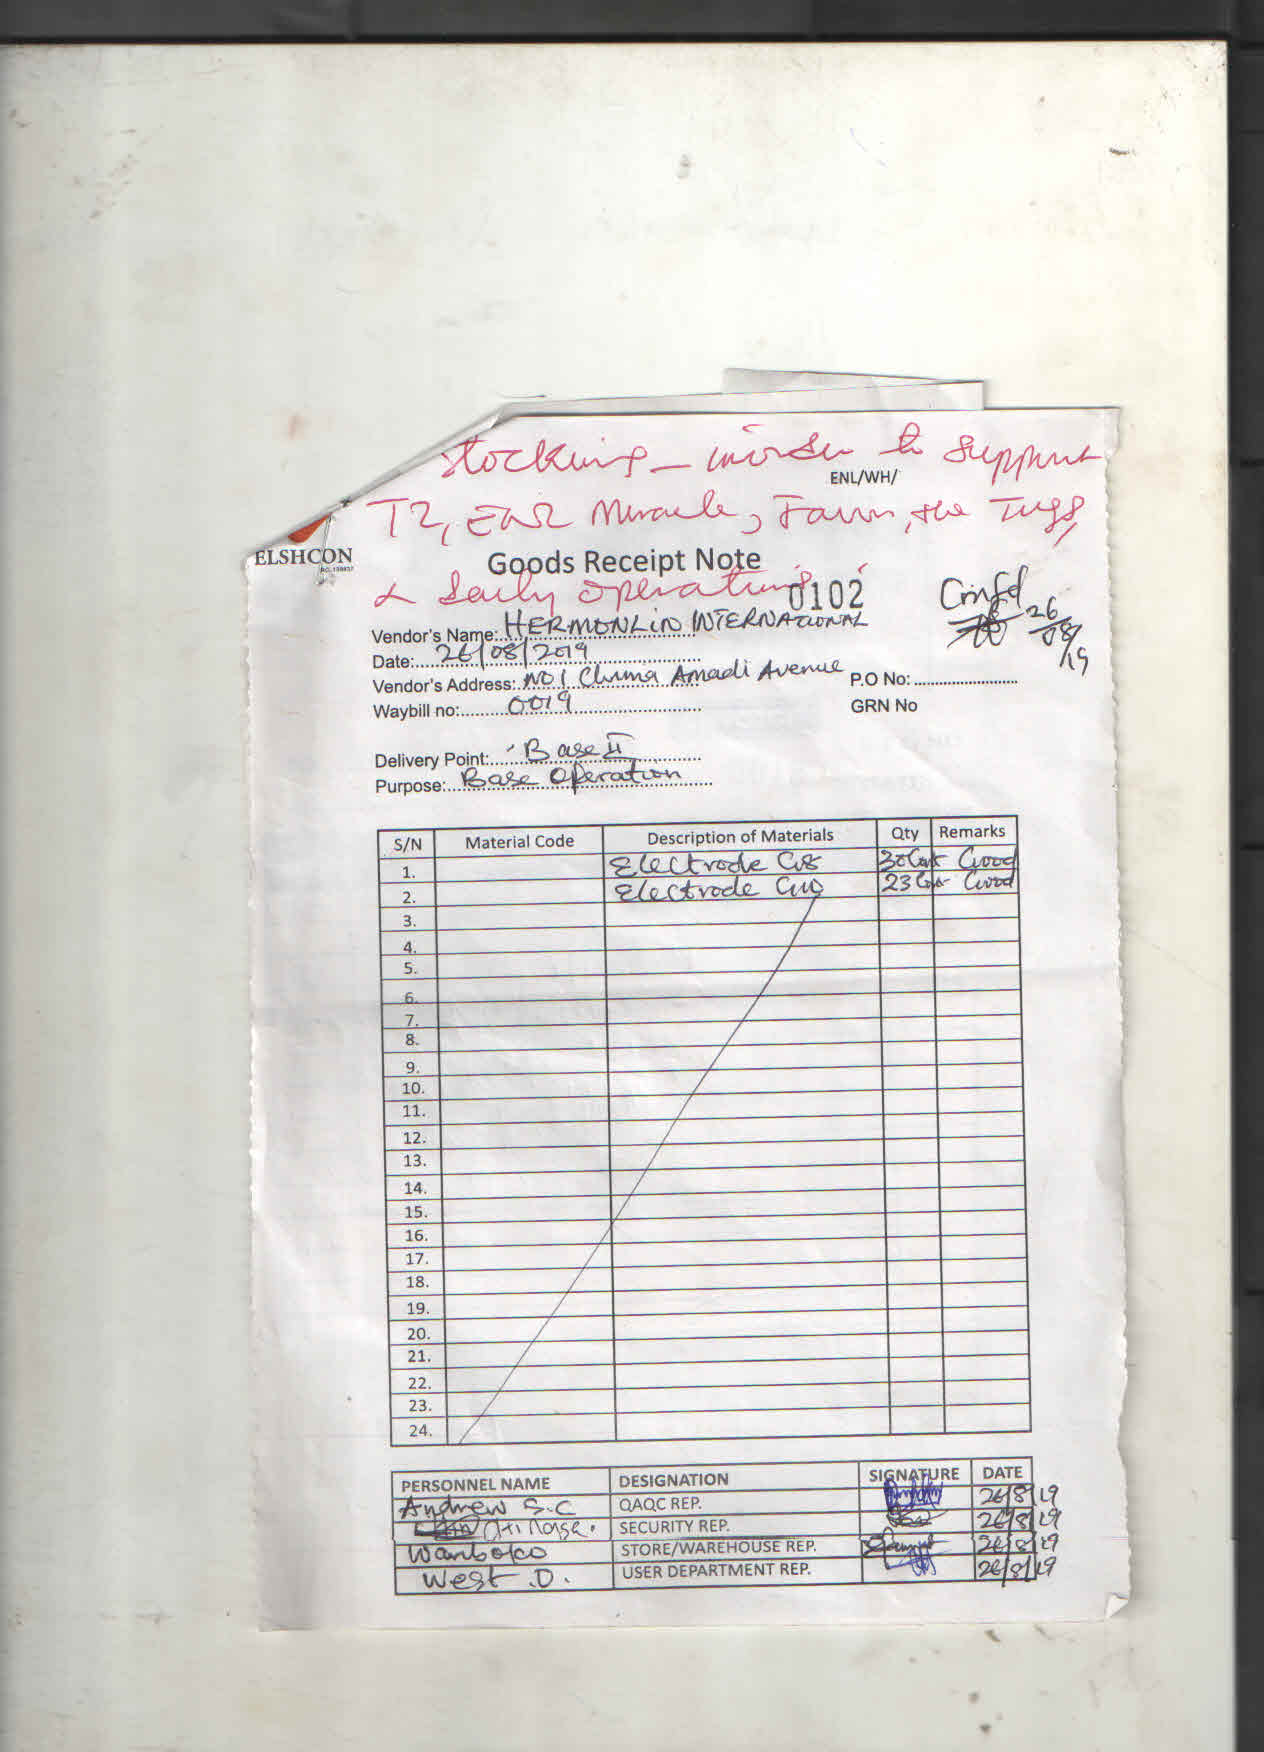 Stocking - inorder to support
ENL/WH/
T2, ENL Miracle, Favour, the Tugs,
ELSHCON
Goods Receipt Note
& daily operations
0102
Confd
26/08/19
Vendor's Name: HERMONLIN INTERNATIONAL
Date: 26/08/2019
Vendor's Address: NO 1 Chima Amadi Avenue P.O No:
Waybill no: 0019 GRN No
Delivery Point: Base II
Purpose: Base Operation
S/N Material Code Description of Materials Qty Remarks
1. Electrode 30 Good
2. Electrode 23 Good
3.
4.
5.
6.
7.
8.
9.
10.
11.
12.
13.
14.
15.
16.
17.
18.
19.
20.
21.
22.
23.
24.
PERSONNEL NAME DESIGNATION SIGNATURE DATE
Andrew S.C QAQC REP. 26/8/19
SECURITY REP. 26/8/19
Wariboko STORE/WAREHOUSE REP. 26/8/19
West .D. USER DEPARTMENT REP. 26/8/19